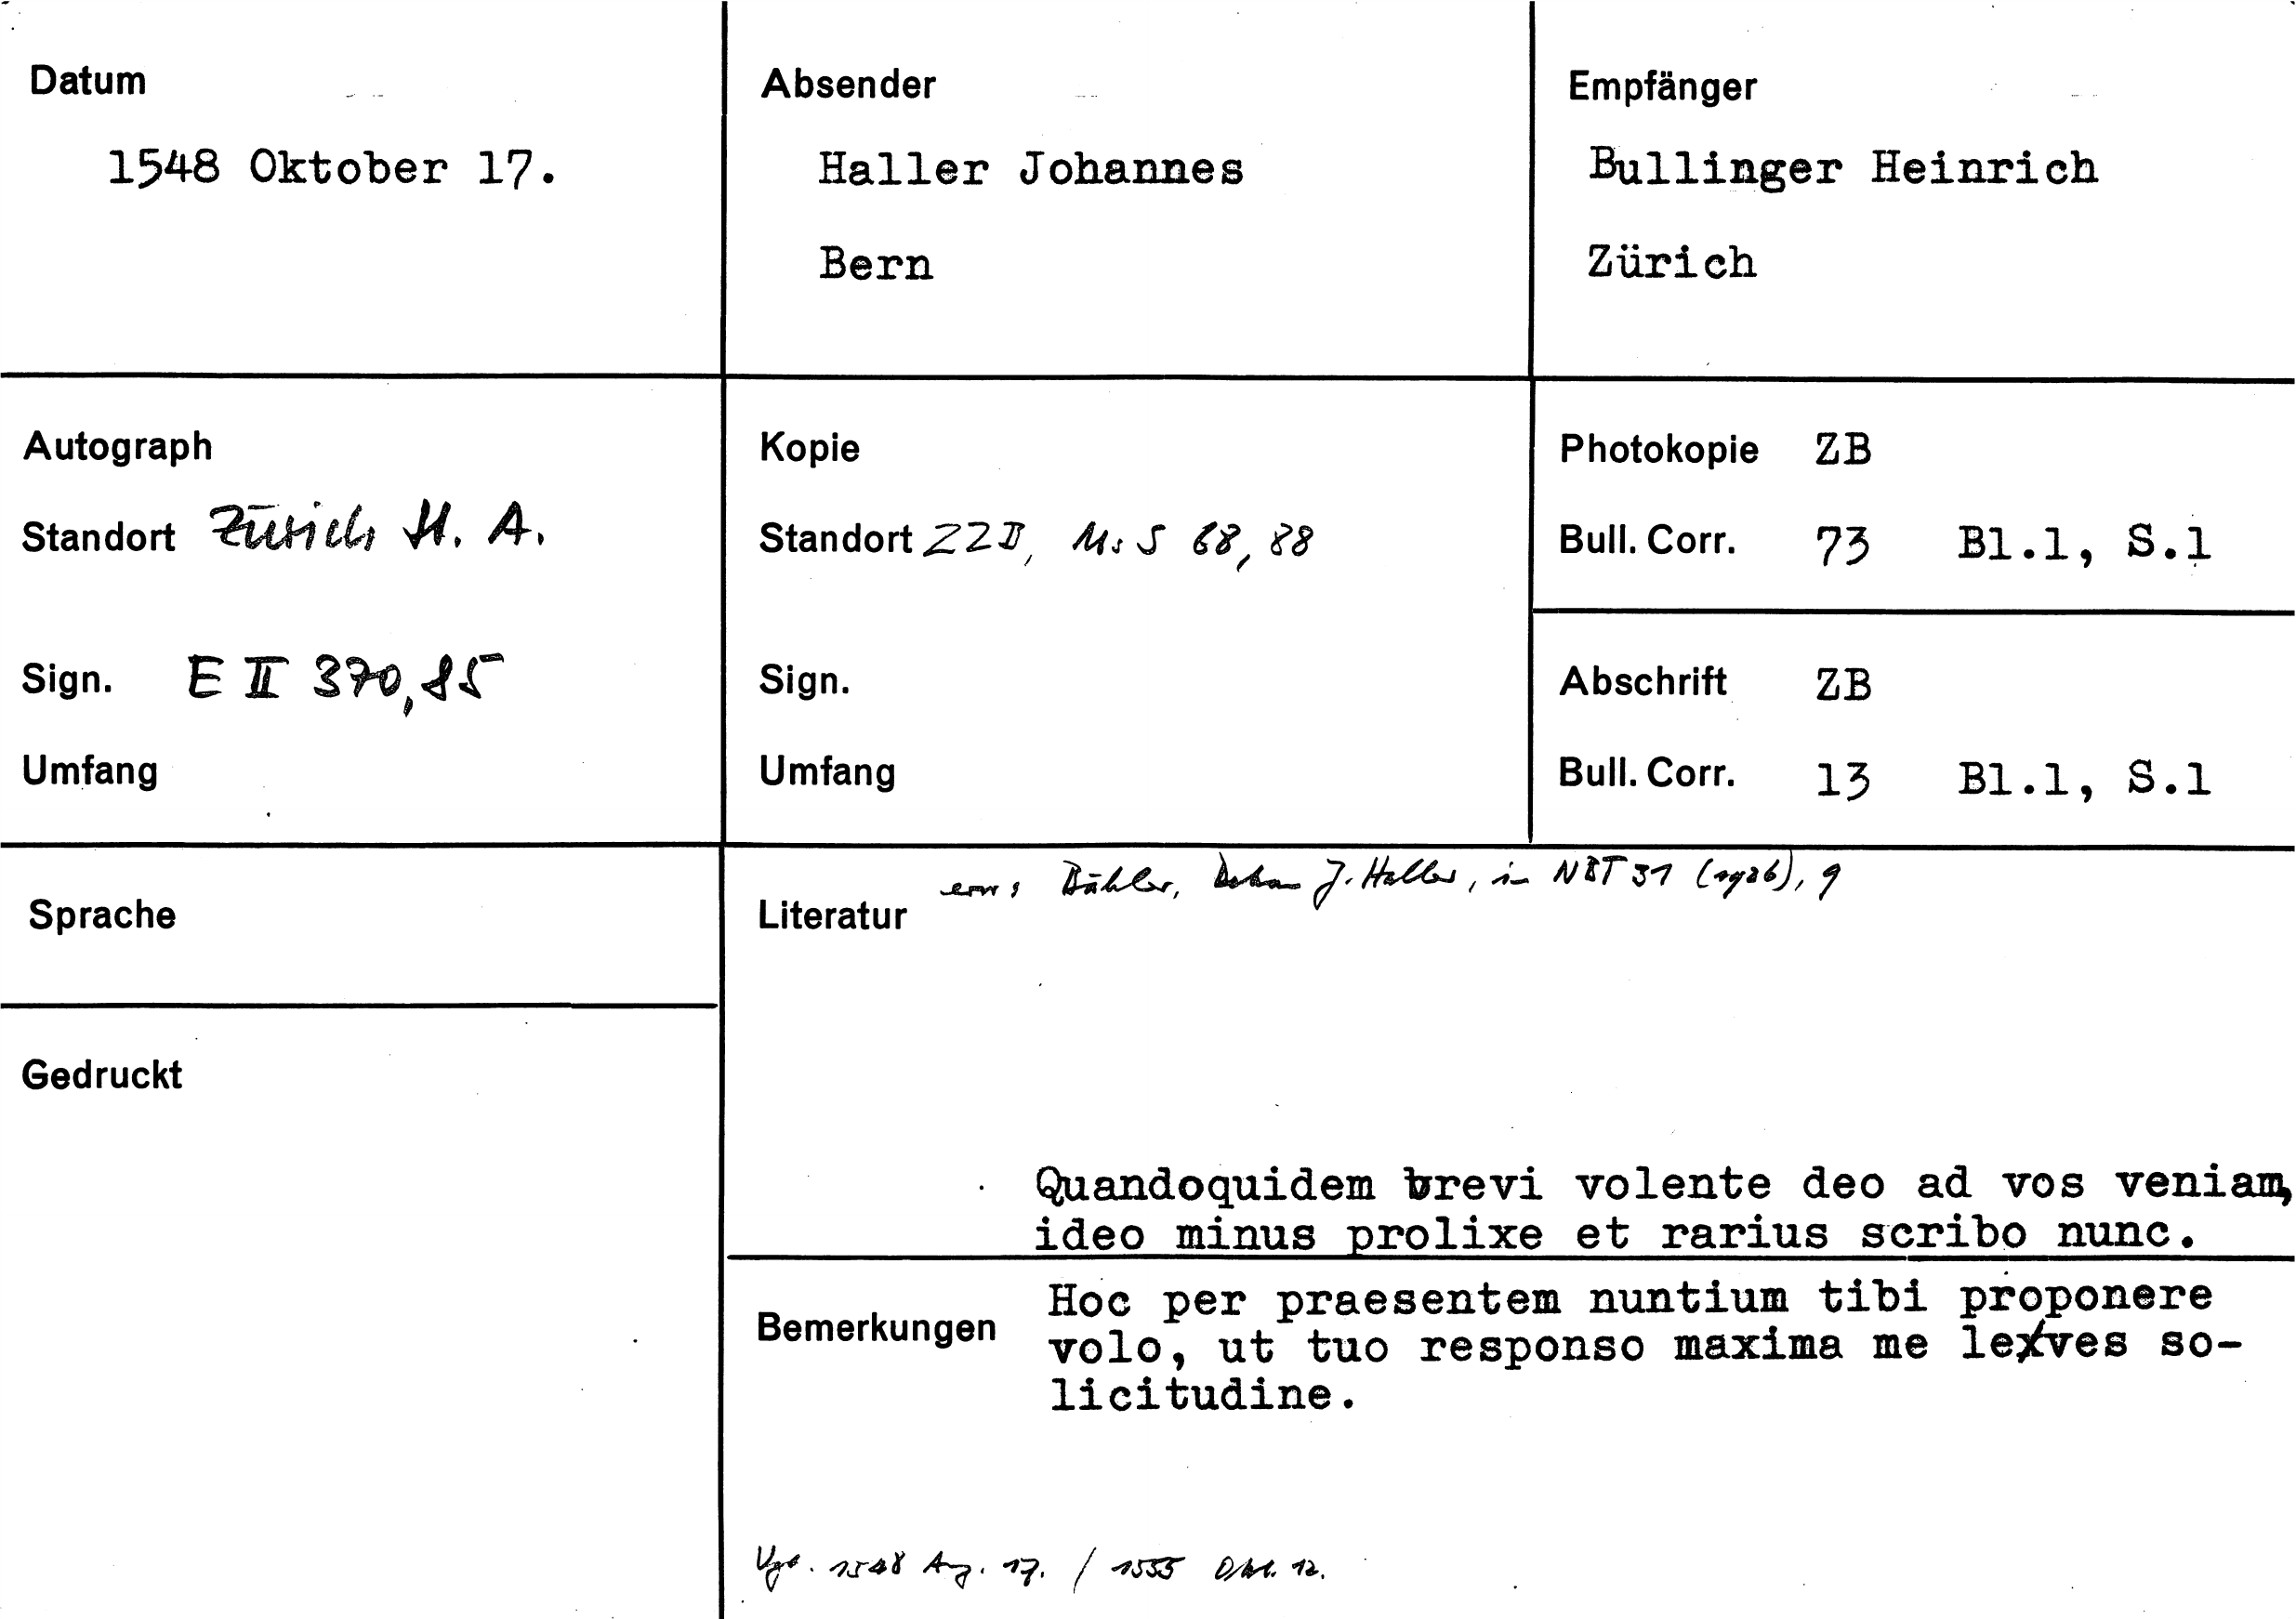 Datum
1548 Oktober 17.
Absender
Haller Johannes
Bern
Empfänger
Bullinger Heinrich
Zürich
Autograph
Standort Zürich St. A.
Sign. E II 370,85
Umfang
Kopie
Standort ZZB, Ms S 68, 88
Sign.
Umfang
Photokopie ZB
Bull. Corr. 73 Bl.1, S.1
Abschrift ZB
Bull. Corr. 13 Bl.1, S.1
Sprache
Gedruckt
Literatur
Bähler, Dekan J. Haller, in NBT 31 (1926), 9
Quandoquidem brevi volente deo ad vos veniam,
ideo minus prolixe et rarius scribo nunc.
Bemerkungen
Hoc per praesentem nuntium tibi proponere
volo, ut tuo responso maxima me leves so-
licitudine.
Vgl. 1548 Aug. 17. / 1555 Okt. 12.